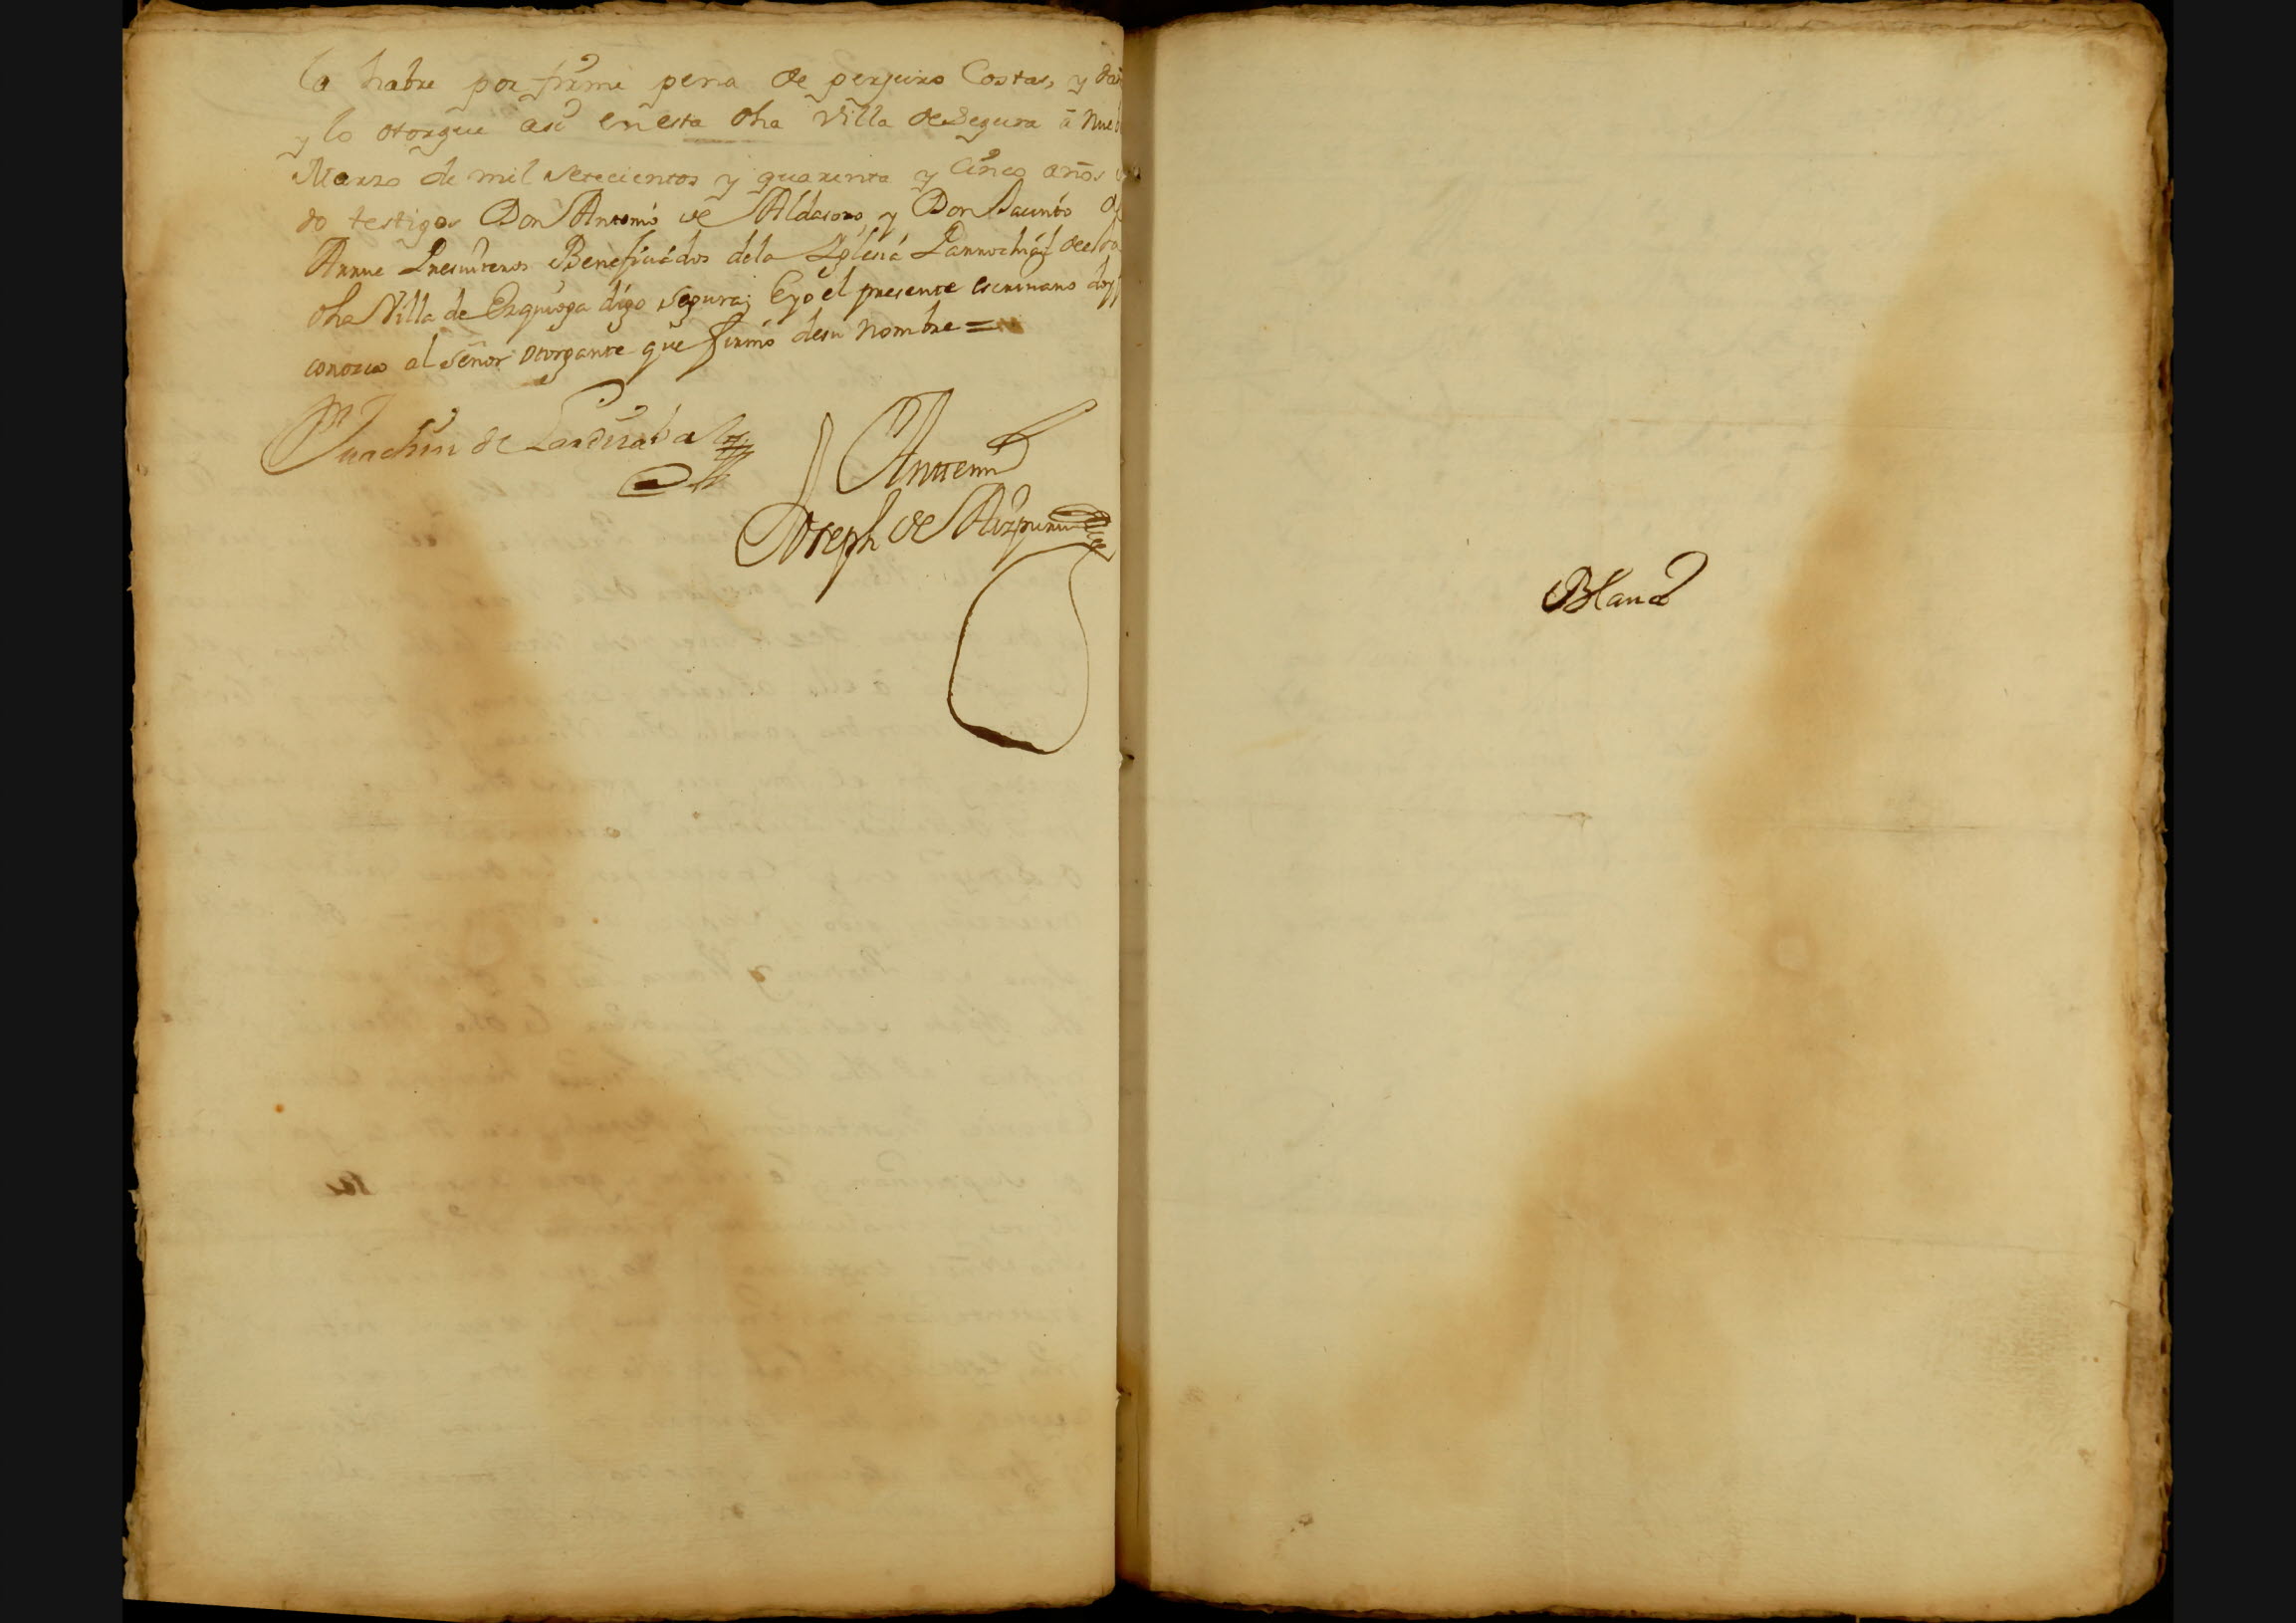 la habre por firme pena de perjuro Costas, y
y lo otorgue asi en esta dha Villa de Segura â
Marzo de mil setecientos y quarenta y Cinco años
do testigos Don Antonio de Aldasoro, y Don Jacinto
Presviteros Beneficiados dela Iglesia Parrochial
dha Villa de Ezquioga digo Segura; E yo el presente escrivano doy
conozco al Señor otorgante que firmó de su nombre =
Juachin de Lardizabal
Antemi
Joseph de Aizpuru
Blanco